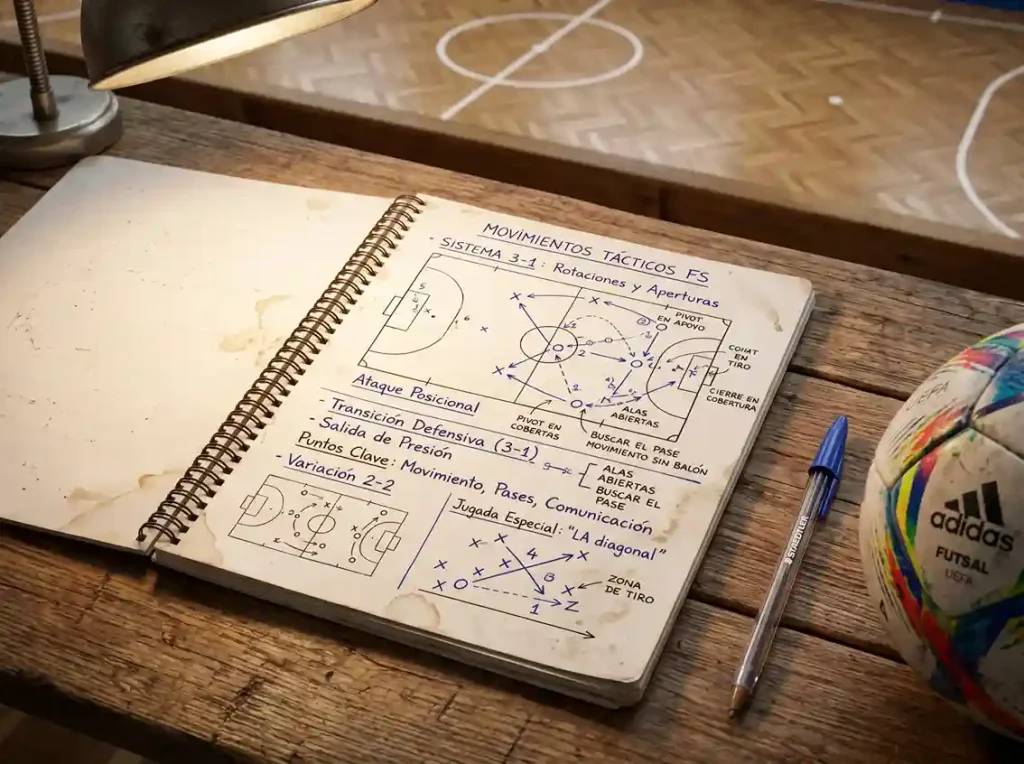 MOVIMIENTOS TÁCTICOS FS
- SISTEMA 3-1: Rotaciones y Aperturas
PIVOT
EN APOYO
EN
TIRO
CIERRE EN
COBERTURA
ALAS
ABIERTAS
PIVOT EN
COBERTAS
BUSCAR EL PASE
MOVIMIENTO SIN BALÓN
Ataque Posicional
- Transición Defensiva (3-1)
- Salida de Presión
ALAS
ABIERTAS
BUSCAR EL
PASE
Puntos Clave: Movimiento, Pases, Comunicación
- Variación 2-2
Jugada Especial: "LA diagonal"
4
1
Z
ZONA
DE TIRO
STAEDTLER
adidas
FUTSAL
UEFA